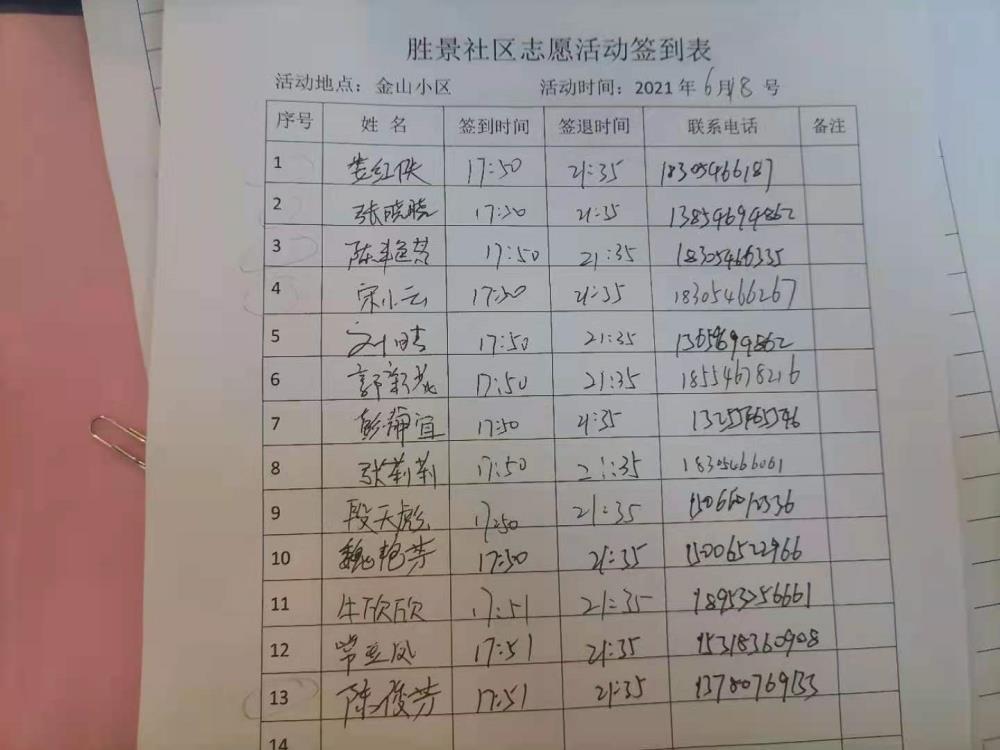 胜景社区志愿活动签到表
活动地点：金山小区 活动时间：2021年6月18号
序号 姓名 签到时间 签退时间 联系电话 备注
1 红侠 17:50 21:35 18305466187
2 张晓晓 17:50 21:35 13854694862
3 陈 17:50 21:35 18305466335
4 宋小云 17:50 21:35 18305466267
5 刘晴 17:50 21:35
6 郭新 17:50 21:35 18554678216
7 彭静宜 17:50 21:35
8 张莉莉 17:50 21:35 18305466061
9 段天彪 17:50 21:35
10 魏艳芳 17:50 21:35 15006522966
11 牛欣欣 17:51 21:35 18953256661
12 常亚凤 17:51 21:35 15318360908
13 陈俊芳 17:51 21:35 13780769133
14